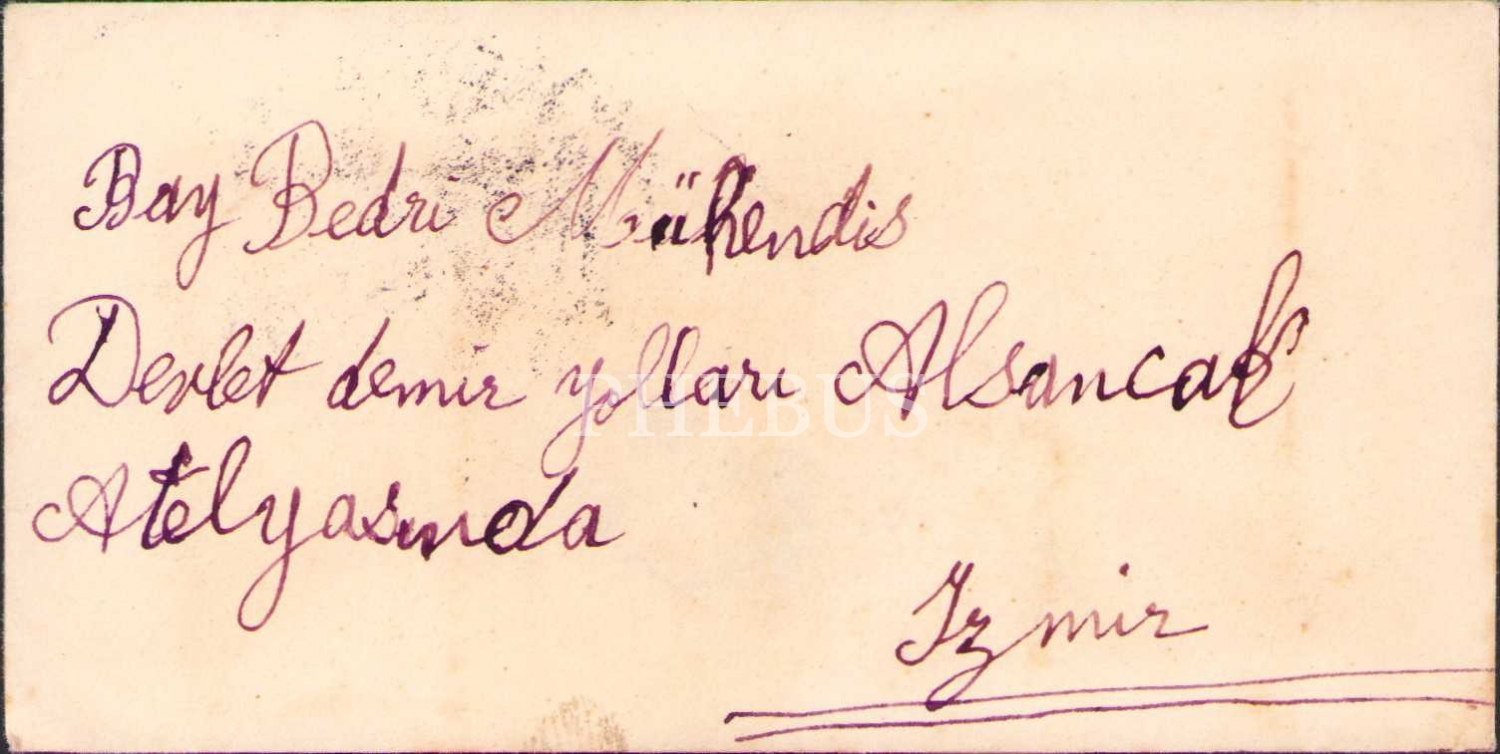 Bay Bedri Mühendis
Devlet demir yolları Alsancak
PHEBUS
Atelyasında
Izmir